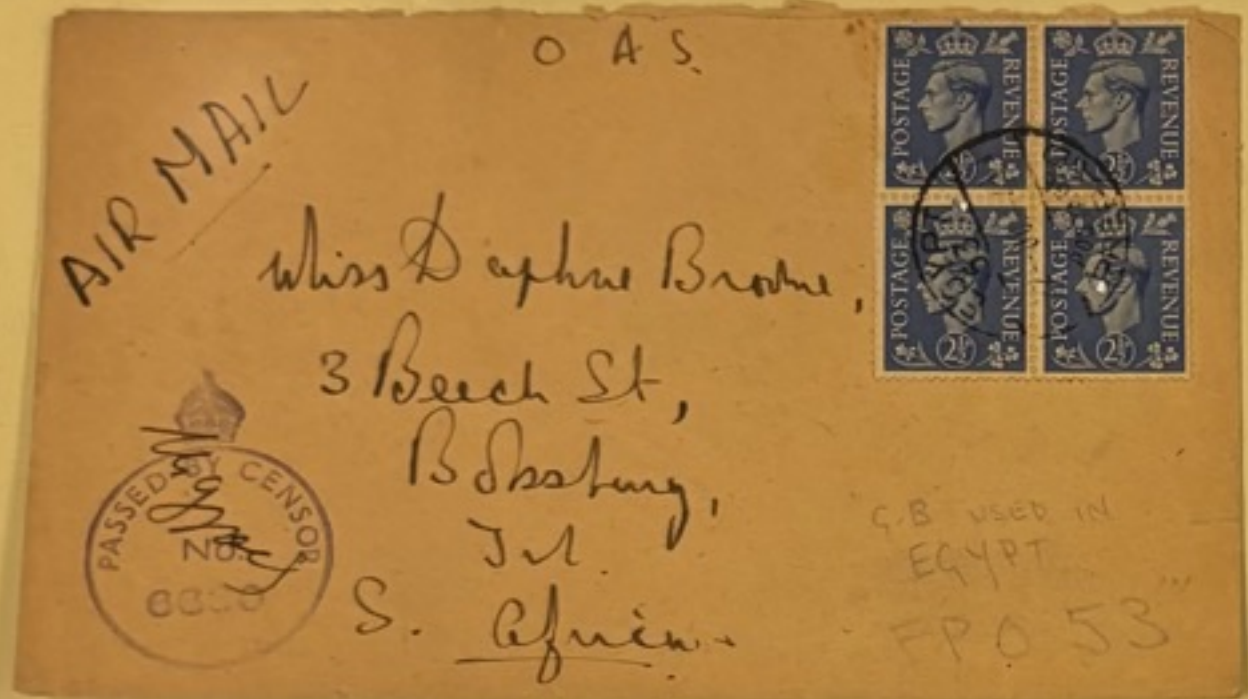 O A S.
AIR MAIL
POSTAGE REVENUE
POSTAGE REVENUE
POSTAGE REVENUE 2½
POSTAGE REVENUE 2½
EGYPT
Miss Daphne Browne,
3 Beech St,
Boksburg,
Tvl.
S. Africa.
PASSED BY CENSOR
No.
G.B USED IN
EGYPT
FPO 53